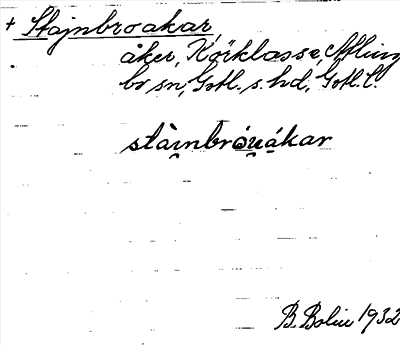 + Stajnbroakar,
åker, Körklasse, Atling
bo sn, Gotl. s. hd, Gotl. l.
stàinbró̱u̯ákar
B. Bolin 1932